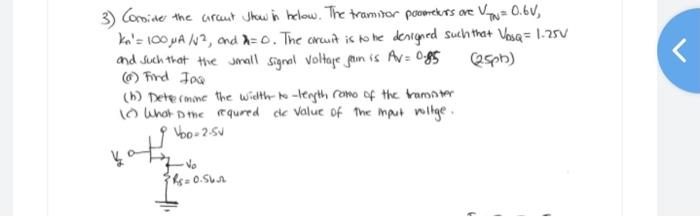 3) Consider the circuit show in below. The transistor parameters are VTN = 0.6V,
kn' = 100 μA/V², and λ=0. The circuit is to be designed such that VDSQ = 1.25V
and such that the small signal voltage gain is Av = 0.85 (25pts)
(a) Find IDQ
(b) Determine the width-to-length ratio of the transistor
(c) What is the required dc value of the input voltge.
VDD=2.5V
Vo
Rs=0.5kΩ